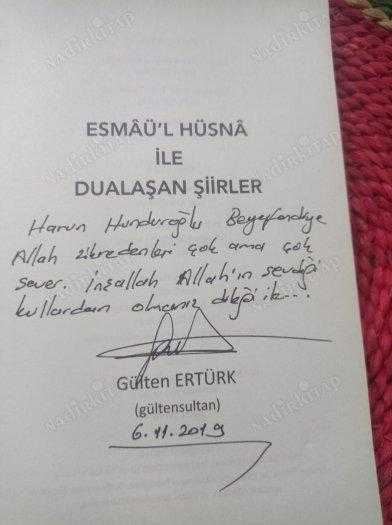 ESMÂÜ'L HÜSNÂ
İLE
DUALAŞAN ŞİİRLER
Harun Hunduroğlu Beyefendiye
Allah zikredenleri çok ama çok
sever. İnşallah Allah'ın sevdiği
kullardan olmanız dileği ile...
Gülten ERTÜRK
(gültensultan)
6.11.2019
nadirkitap